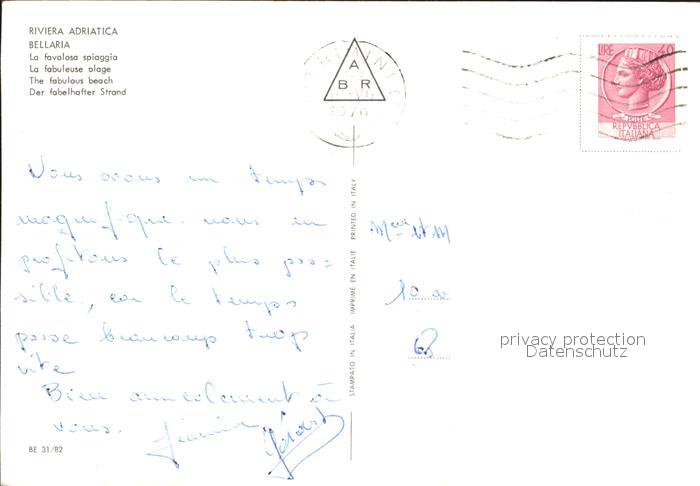 RIVIERA ADRIATICA
BELLARIA
La favolosa spiaggia
La fabuleuse plage
The fabulous beach
Der fabelhafter Strand
A
B R
1970
LIRE 40
POSTE
REPVBBLICA
ITALIANA
Nous avons un temps
magnifique. nous en
profitons le plus pos=
sible, car le temps
passe beaucoup trop
vite
Bien amicalement à
vous.
Gérard
STAMPATO IN ITALIA IMPRIMÉ EN ITALIE PRINTED IN ITALY
10
privacy protection
Datenschutz
BE 31/82